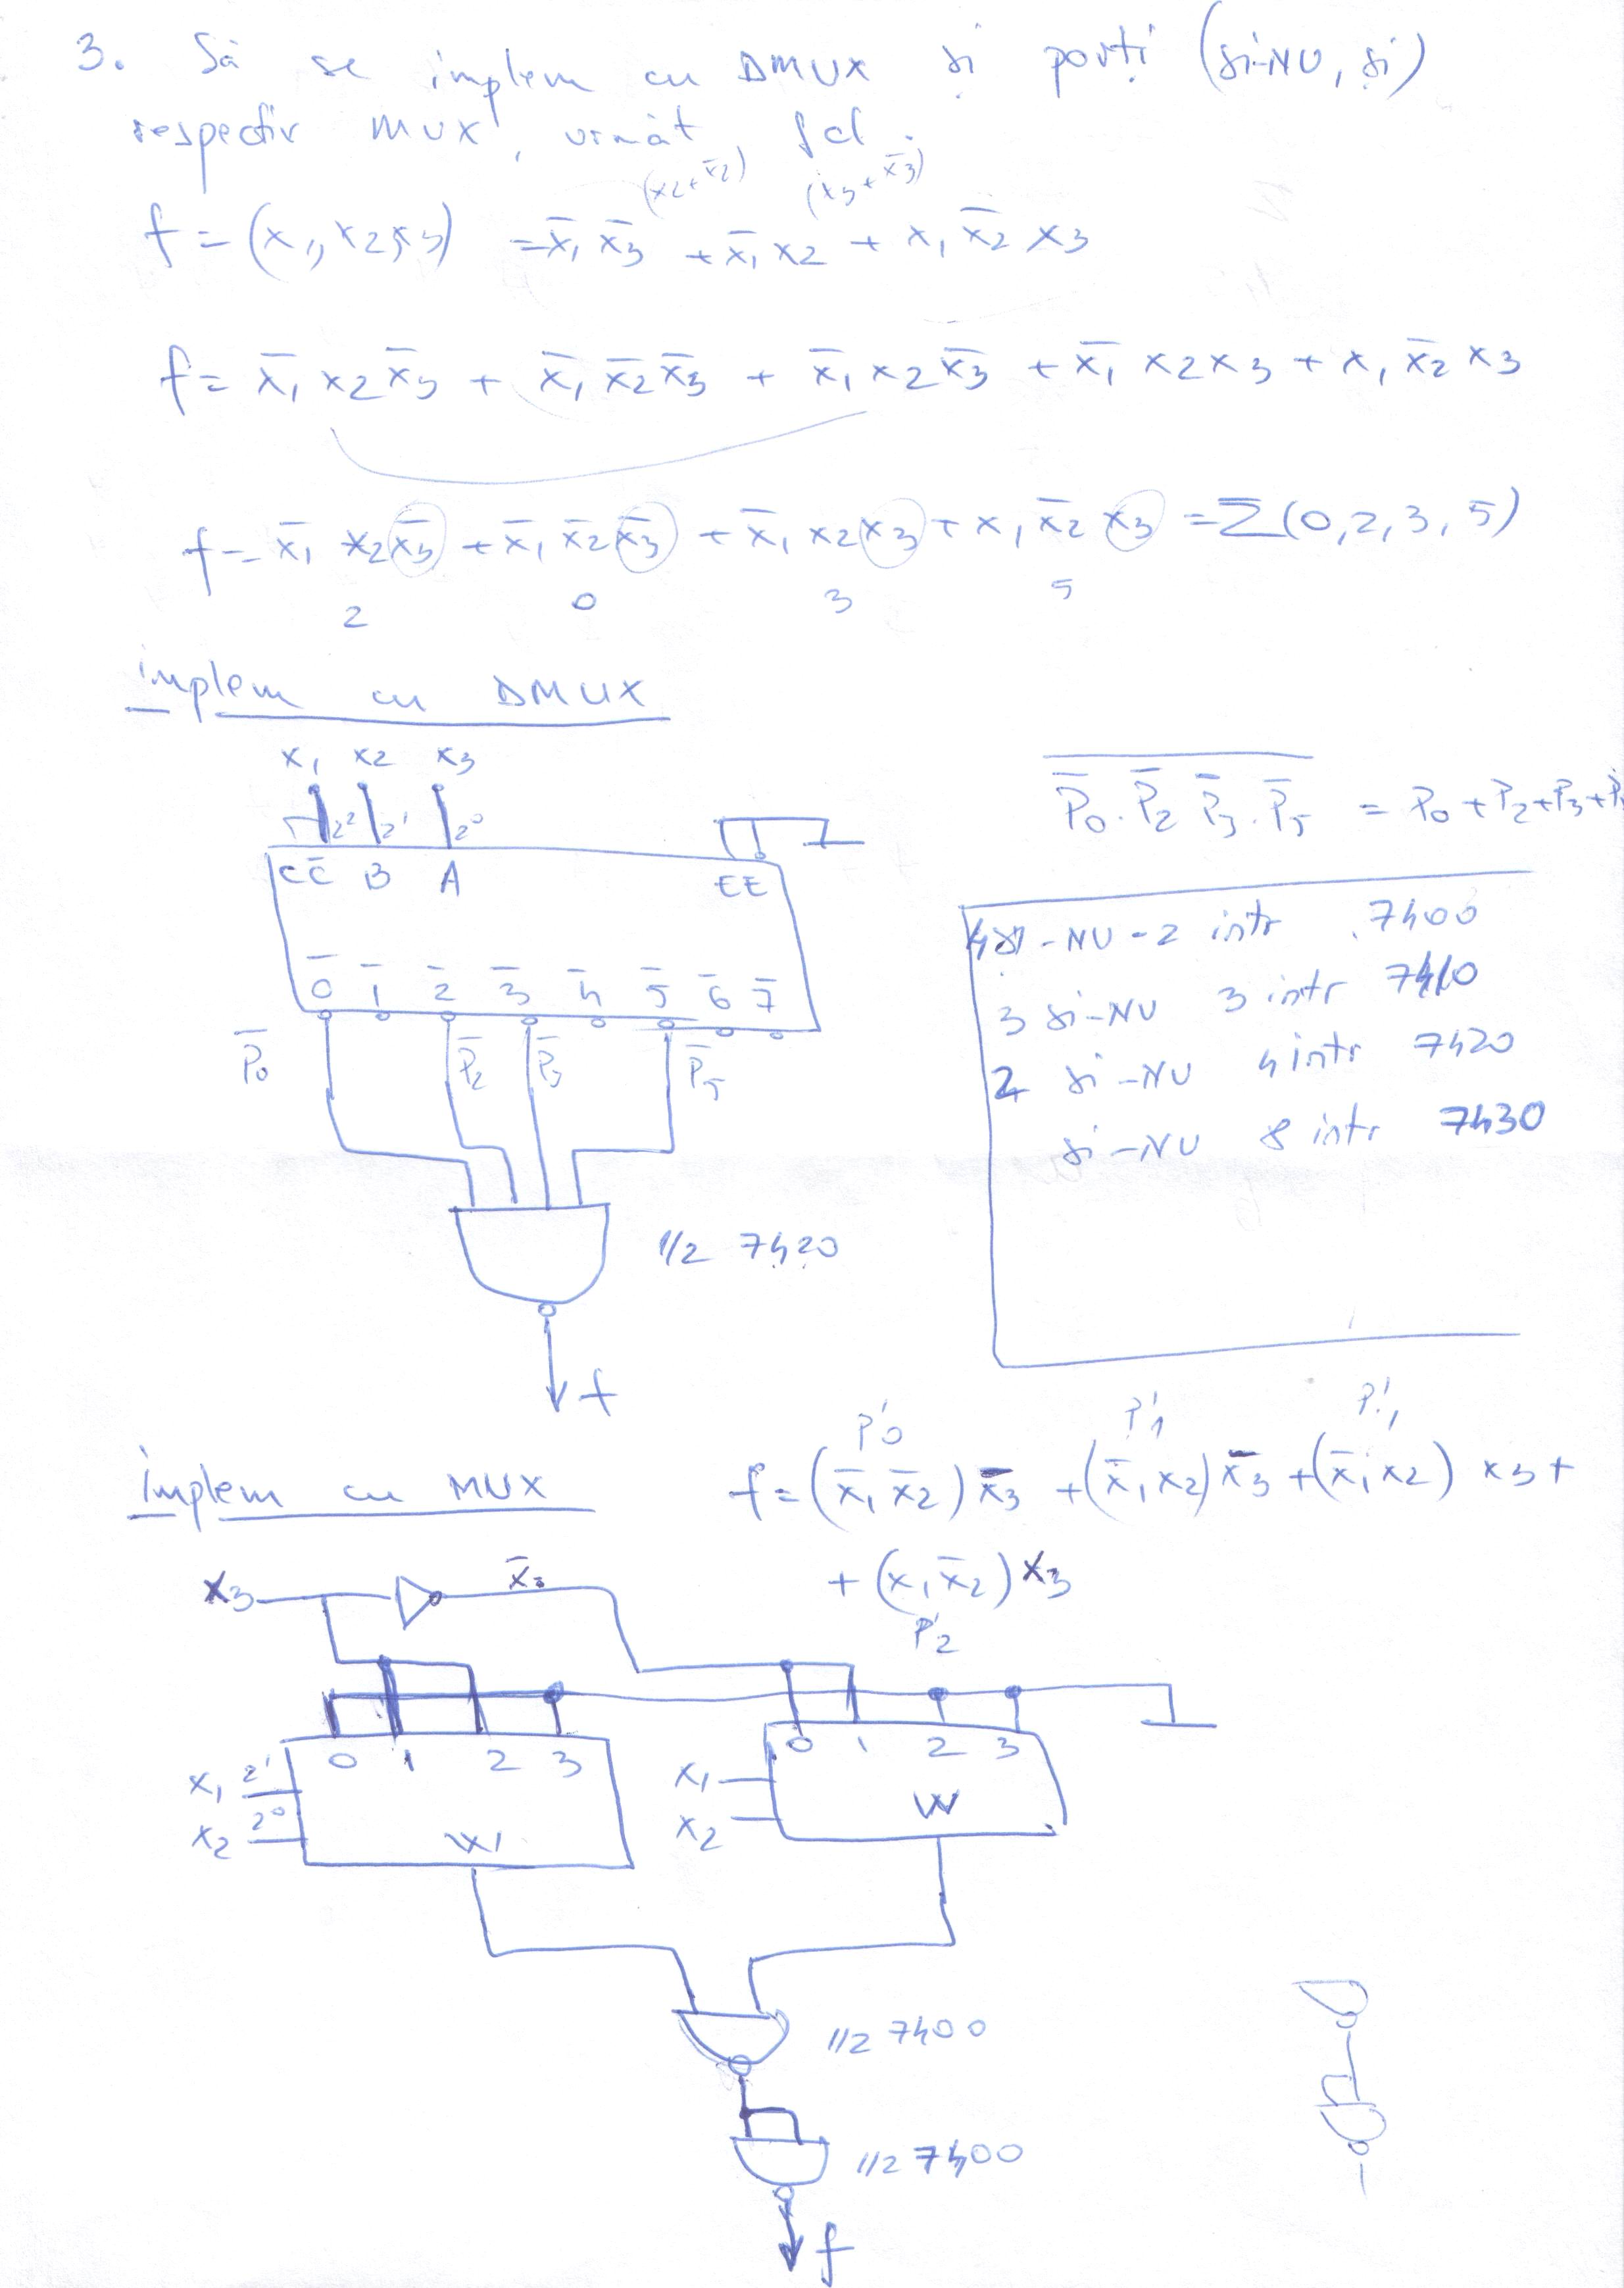 3. Să se implem cu DMUX și porți (și-NU, și)
respectiv MUX, următ fcț.
(x2+x̄2) (x3+x̄3)
f = (x1, x2, x3) = x̄1 x̄3 + x̄1 x2 + x1 x̄2 x3
f = x̄1 x2 x̄3 + x̄1 x̄2 x̄3 + x̄1 x2 x̄3 + x̄1 x2 x3 + x1 x̄2 x3
f = x̄1 x2 x̄3 + x̄1 x̄2 x̄3 + x̄1 x2 x3 + x1 x̄2 x3 = Σ(0,2,3,5)
2 0 3 5
implem cu DMUX
x1 x2 x3
2² 2¹ 2⁰
C C̄ B A E E
0̄ 1̄ 2̄ 3̄ 4̄ 5̄ 6̄ 7̄
P̄0 P̄2 P̄3 P̄5
1/2 7420
f
P̄0 · P̄2 P̄3 · P̄5 = P0 + P2 + P3 + P5
4 și-NU - 2 intr 7400
3 și-NU 3 intr 7410
2 și-NU 4 intr 7420
și-NU 8 intr 7430
implem cu MUX
P'0 P'1 P'1
f = (x̄1 x̄2) x̄3 + (x̄1 x2) x̄3 + (x̄1 x2) x3 +
+ (x1 x̄2) x3
P'2
x3 x̄3
0 1 2 3
x1 2¹
x2 2⁰
W1
0 1 2 3
x1
x2
W
1/2 7400
1/2 7400
f